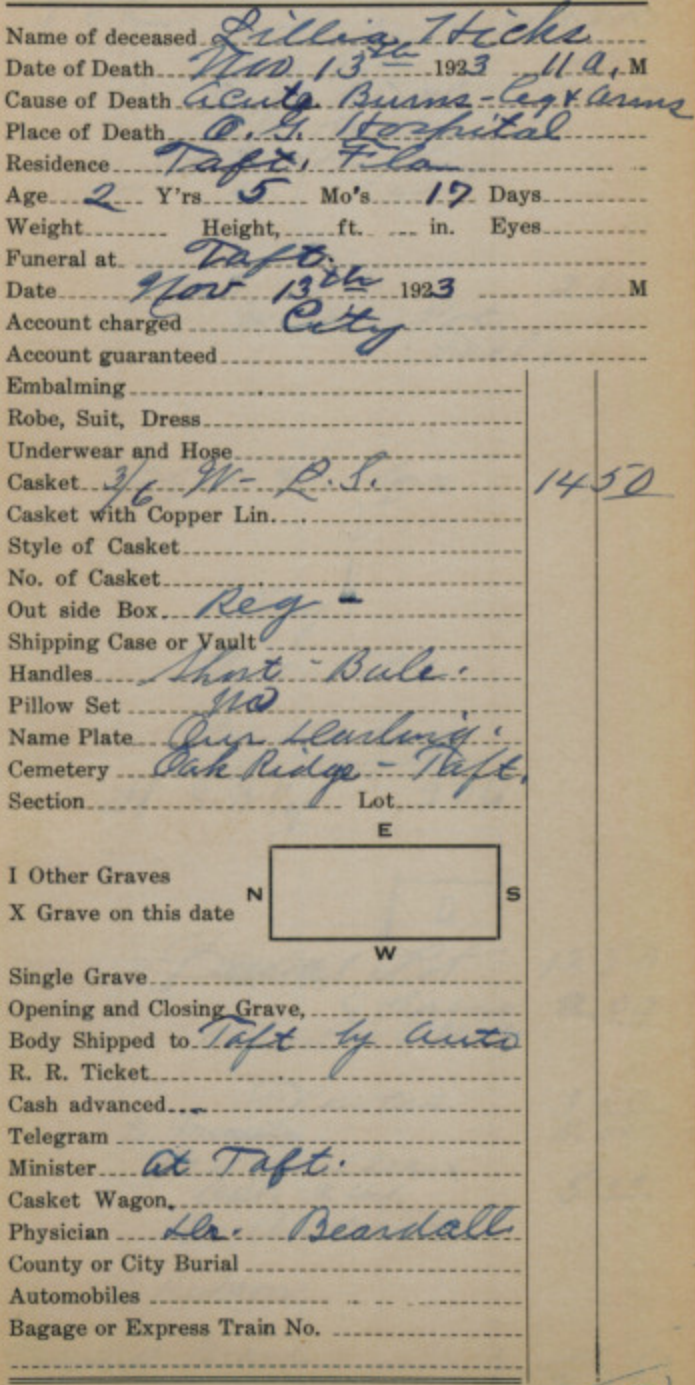 Name of deceased Lillia Hicks
Date of Death Nov 13th 1923 11 a. M
Cause of Death Acute Burns - leg & arms
Place of Death O. G. Hospital
Residence Taft, Fla
Age 2 Y'rs 5 Mo's 17 Days
Weight Height, ft. in. Eyes
Funeral at Taft.
Date Nov 13th 1923 M
Account charged City
Account guaranteed
Embalming
Robe, Suit, Dress
Underwear and Hose
Casket 3/6 W- P.S. 14 50
Casket with Copper Lin.
Style of Casket
No. of Casket
Out side Box Reg -
Shipping Case or Vault
Handles Short - Bale.
Pillow Set No
Name Plate Our Darling.
Cemetery Oak Ridge - Taft.
Section Lot
E
I Other Graves
N S
X Grave on this date
W
Single Grave
Opening and Closing Grave,
Body Shipped to Taft by auto
R. R. Ticket
Cash advanced
Telegram
Minister at Taft.
Casket Wagon
Physician Dr. Beardall
County or City Burial
Automobiles
Bagage or Express Train No.